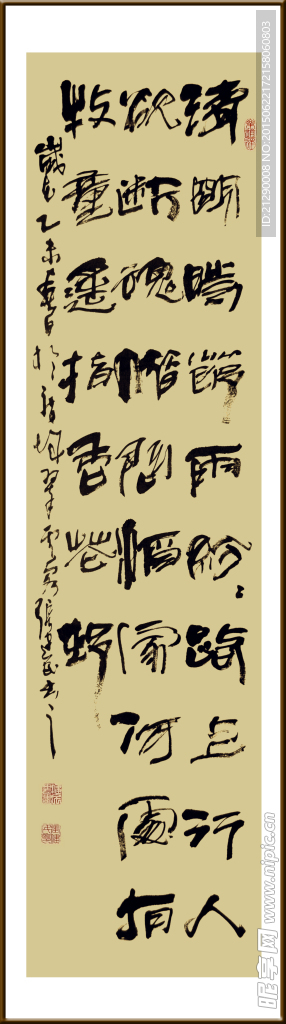 清明時節雨紛〻路上行人
欲断魂借問酒家何處有
牧童遥指杏花邨
歲在乙未春日於翠雲張書之
ID:21290008 NO:20150622172158060803
昵享网 www.nipic.cn